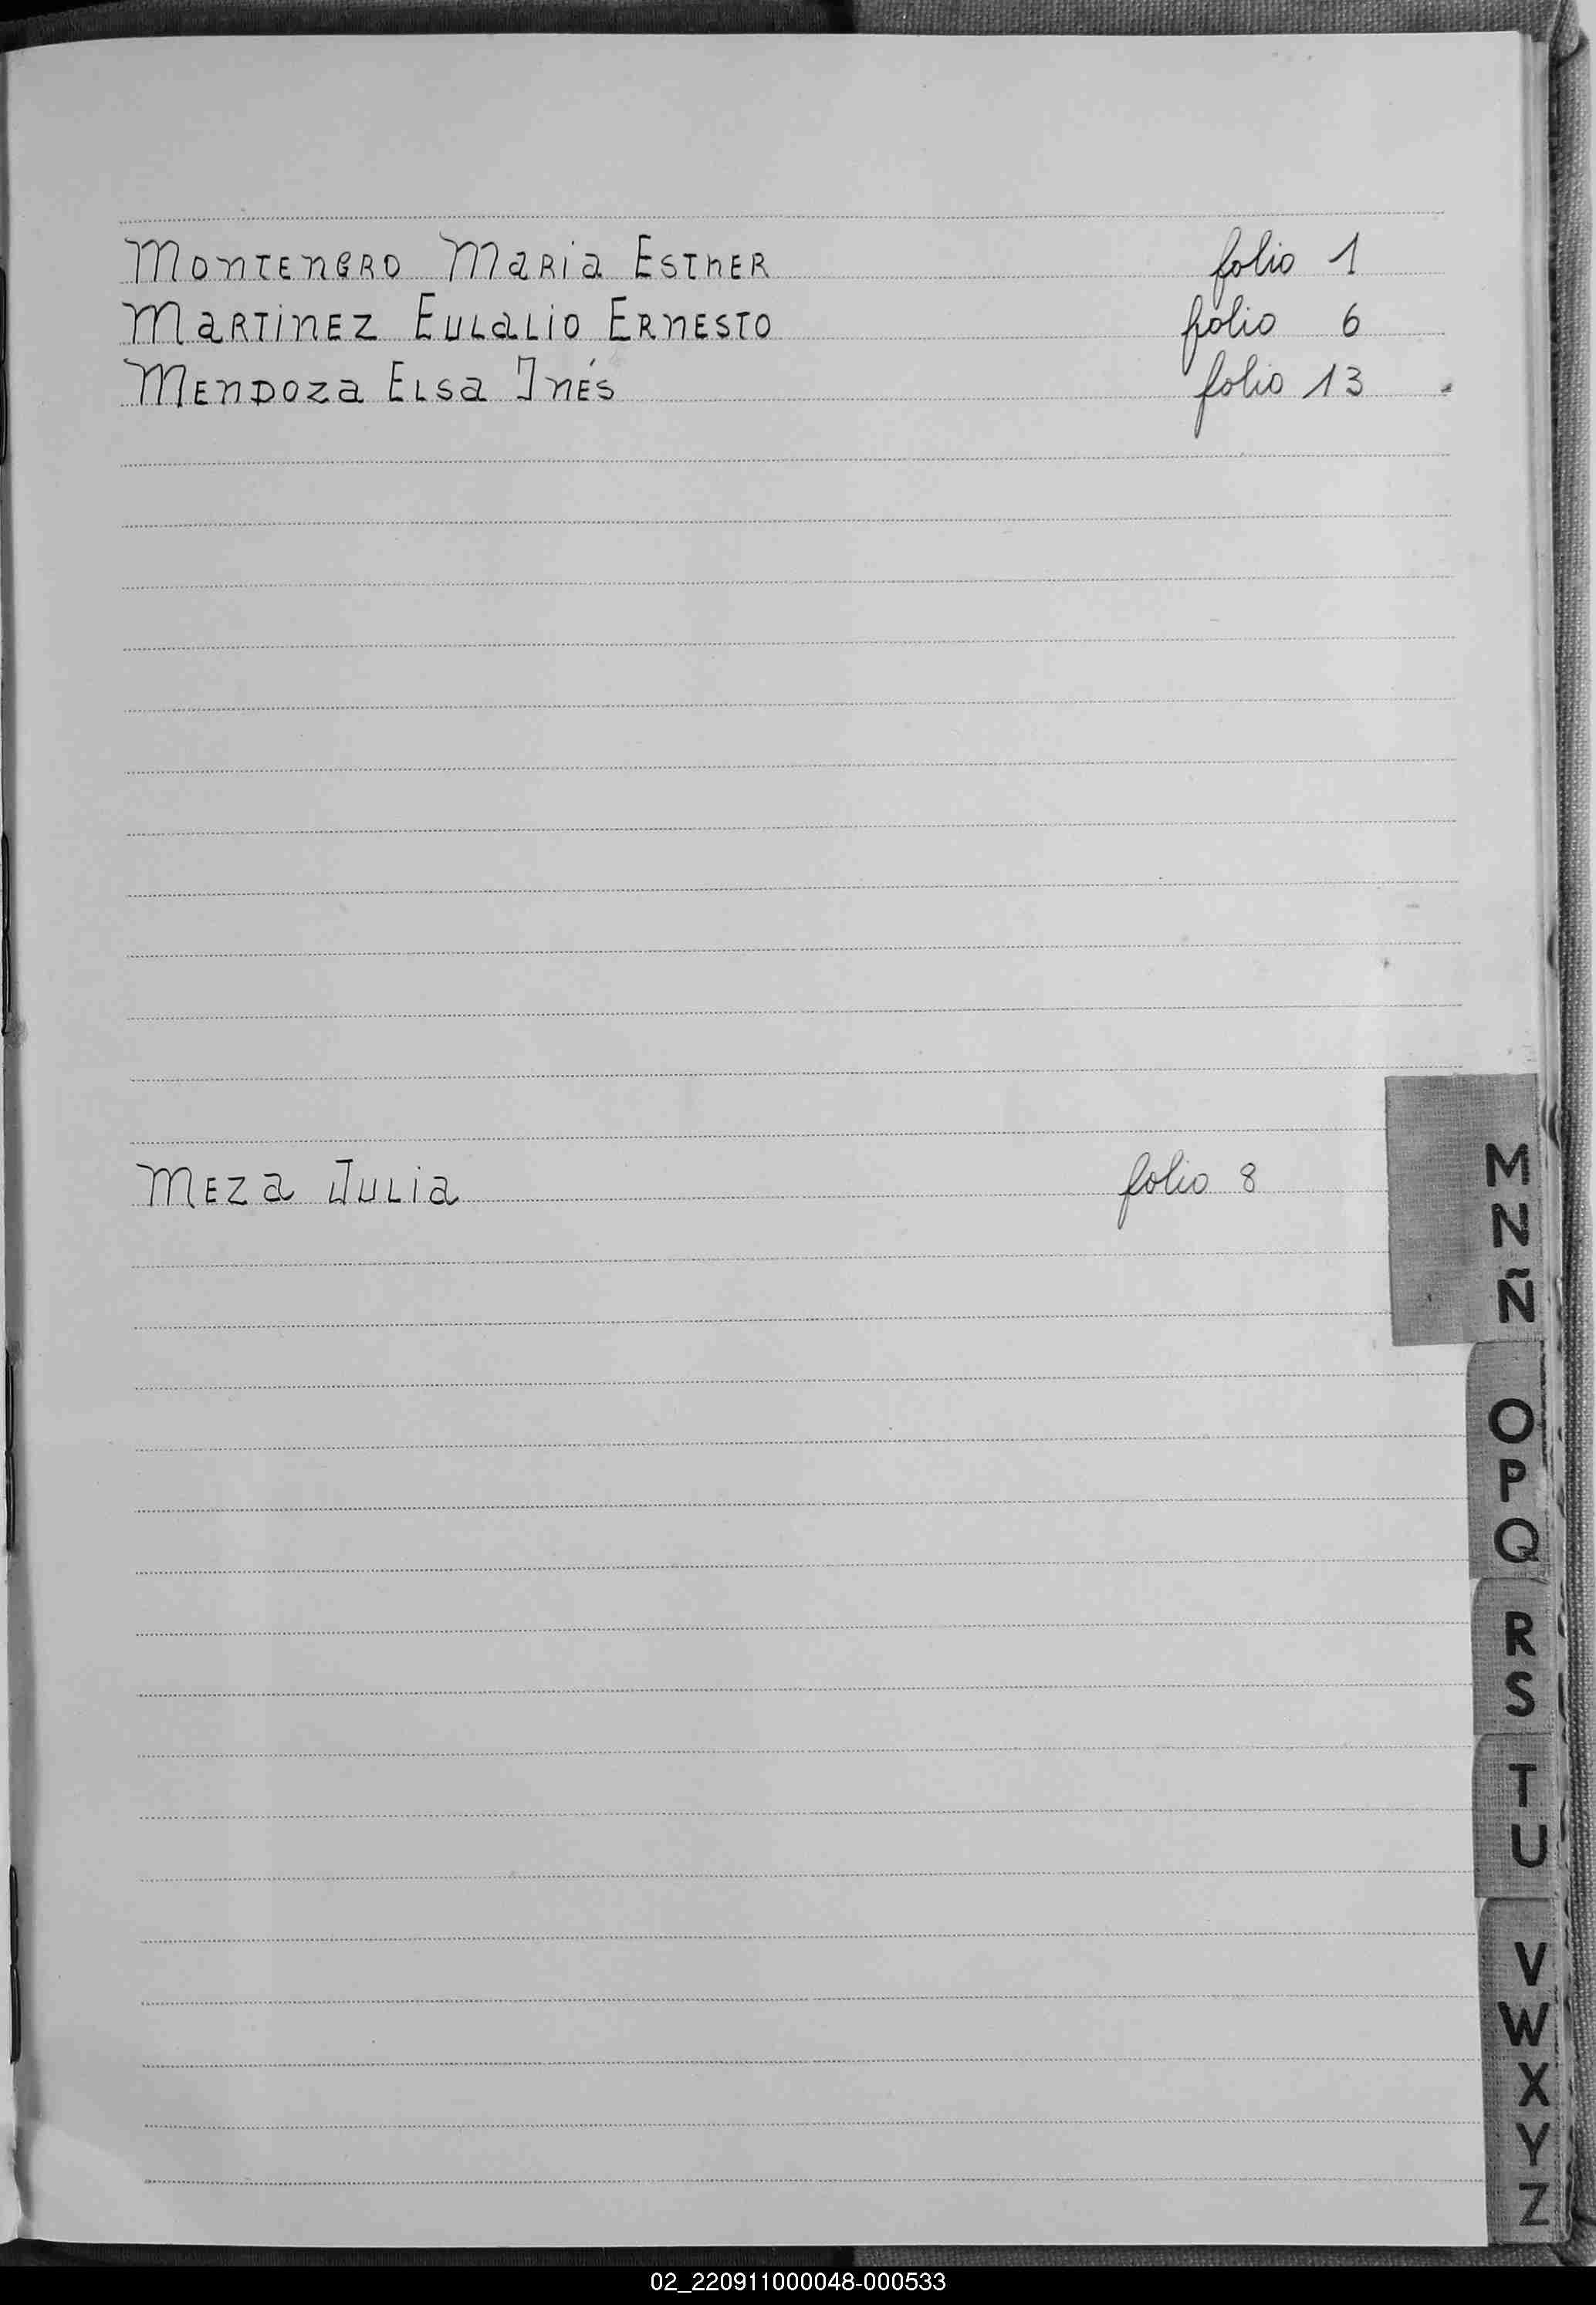 Montenegro Maria Esther folio 1
Martinez Eulalio Ernesto folio 6
Mendoza Elsa Inés folio 13
Meza Julia folio 8
M
N
Ñ
O
P
Q
R
S
T
U
V
W
X
Y
Z
02_220911000048-000533